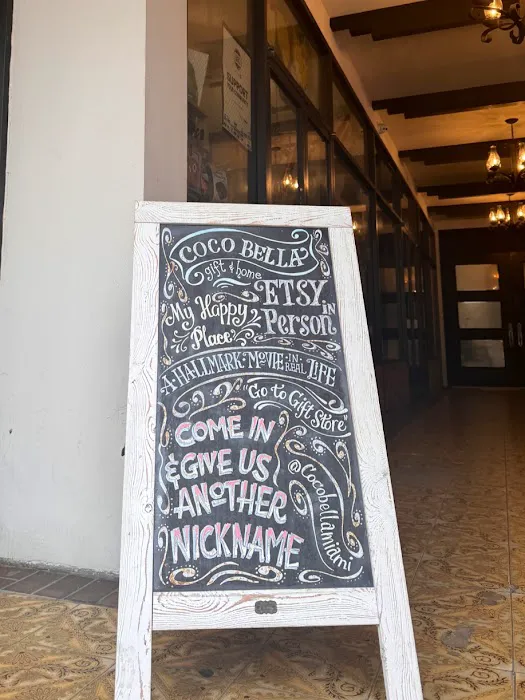 SUPPORT
COCO BELLA
gift & home
ETSY
in
Person
My Happy
Place
A·HALLMARK·MOVIE·IN REAL LIFE
"Go to Gift Store"
COME IN
& GIVE US
ANOTHER
NICKNAME
@Cocobellamiami